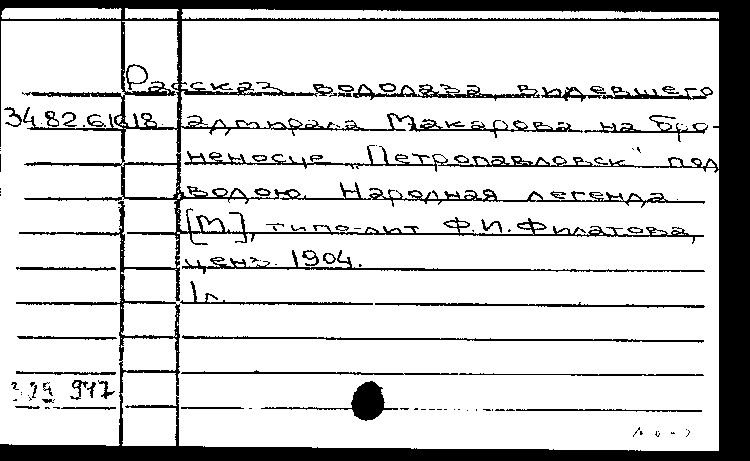 Рассказ водолаза, видевшего
34.82.6.1618 адмирала Макарова на бро-
неносце „Петропавловск" под
водою. Народная легенда
[М.], типо-лит Ф.И.Филатова,
ценз. 1904.
1 л.
947